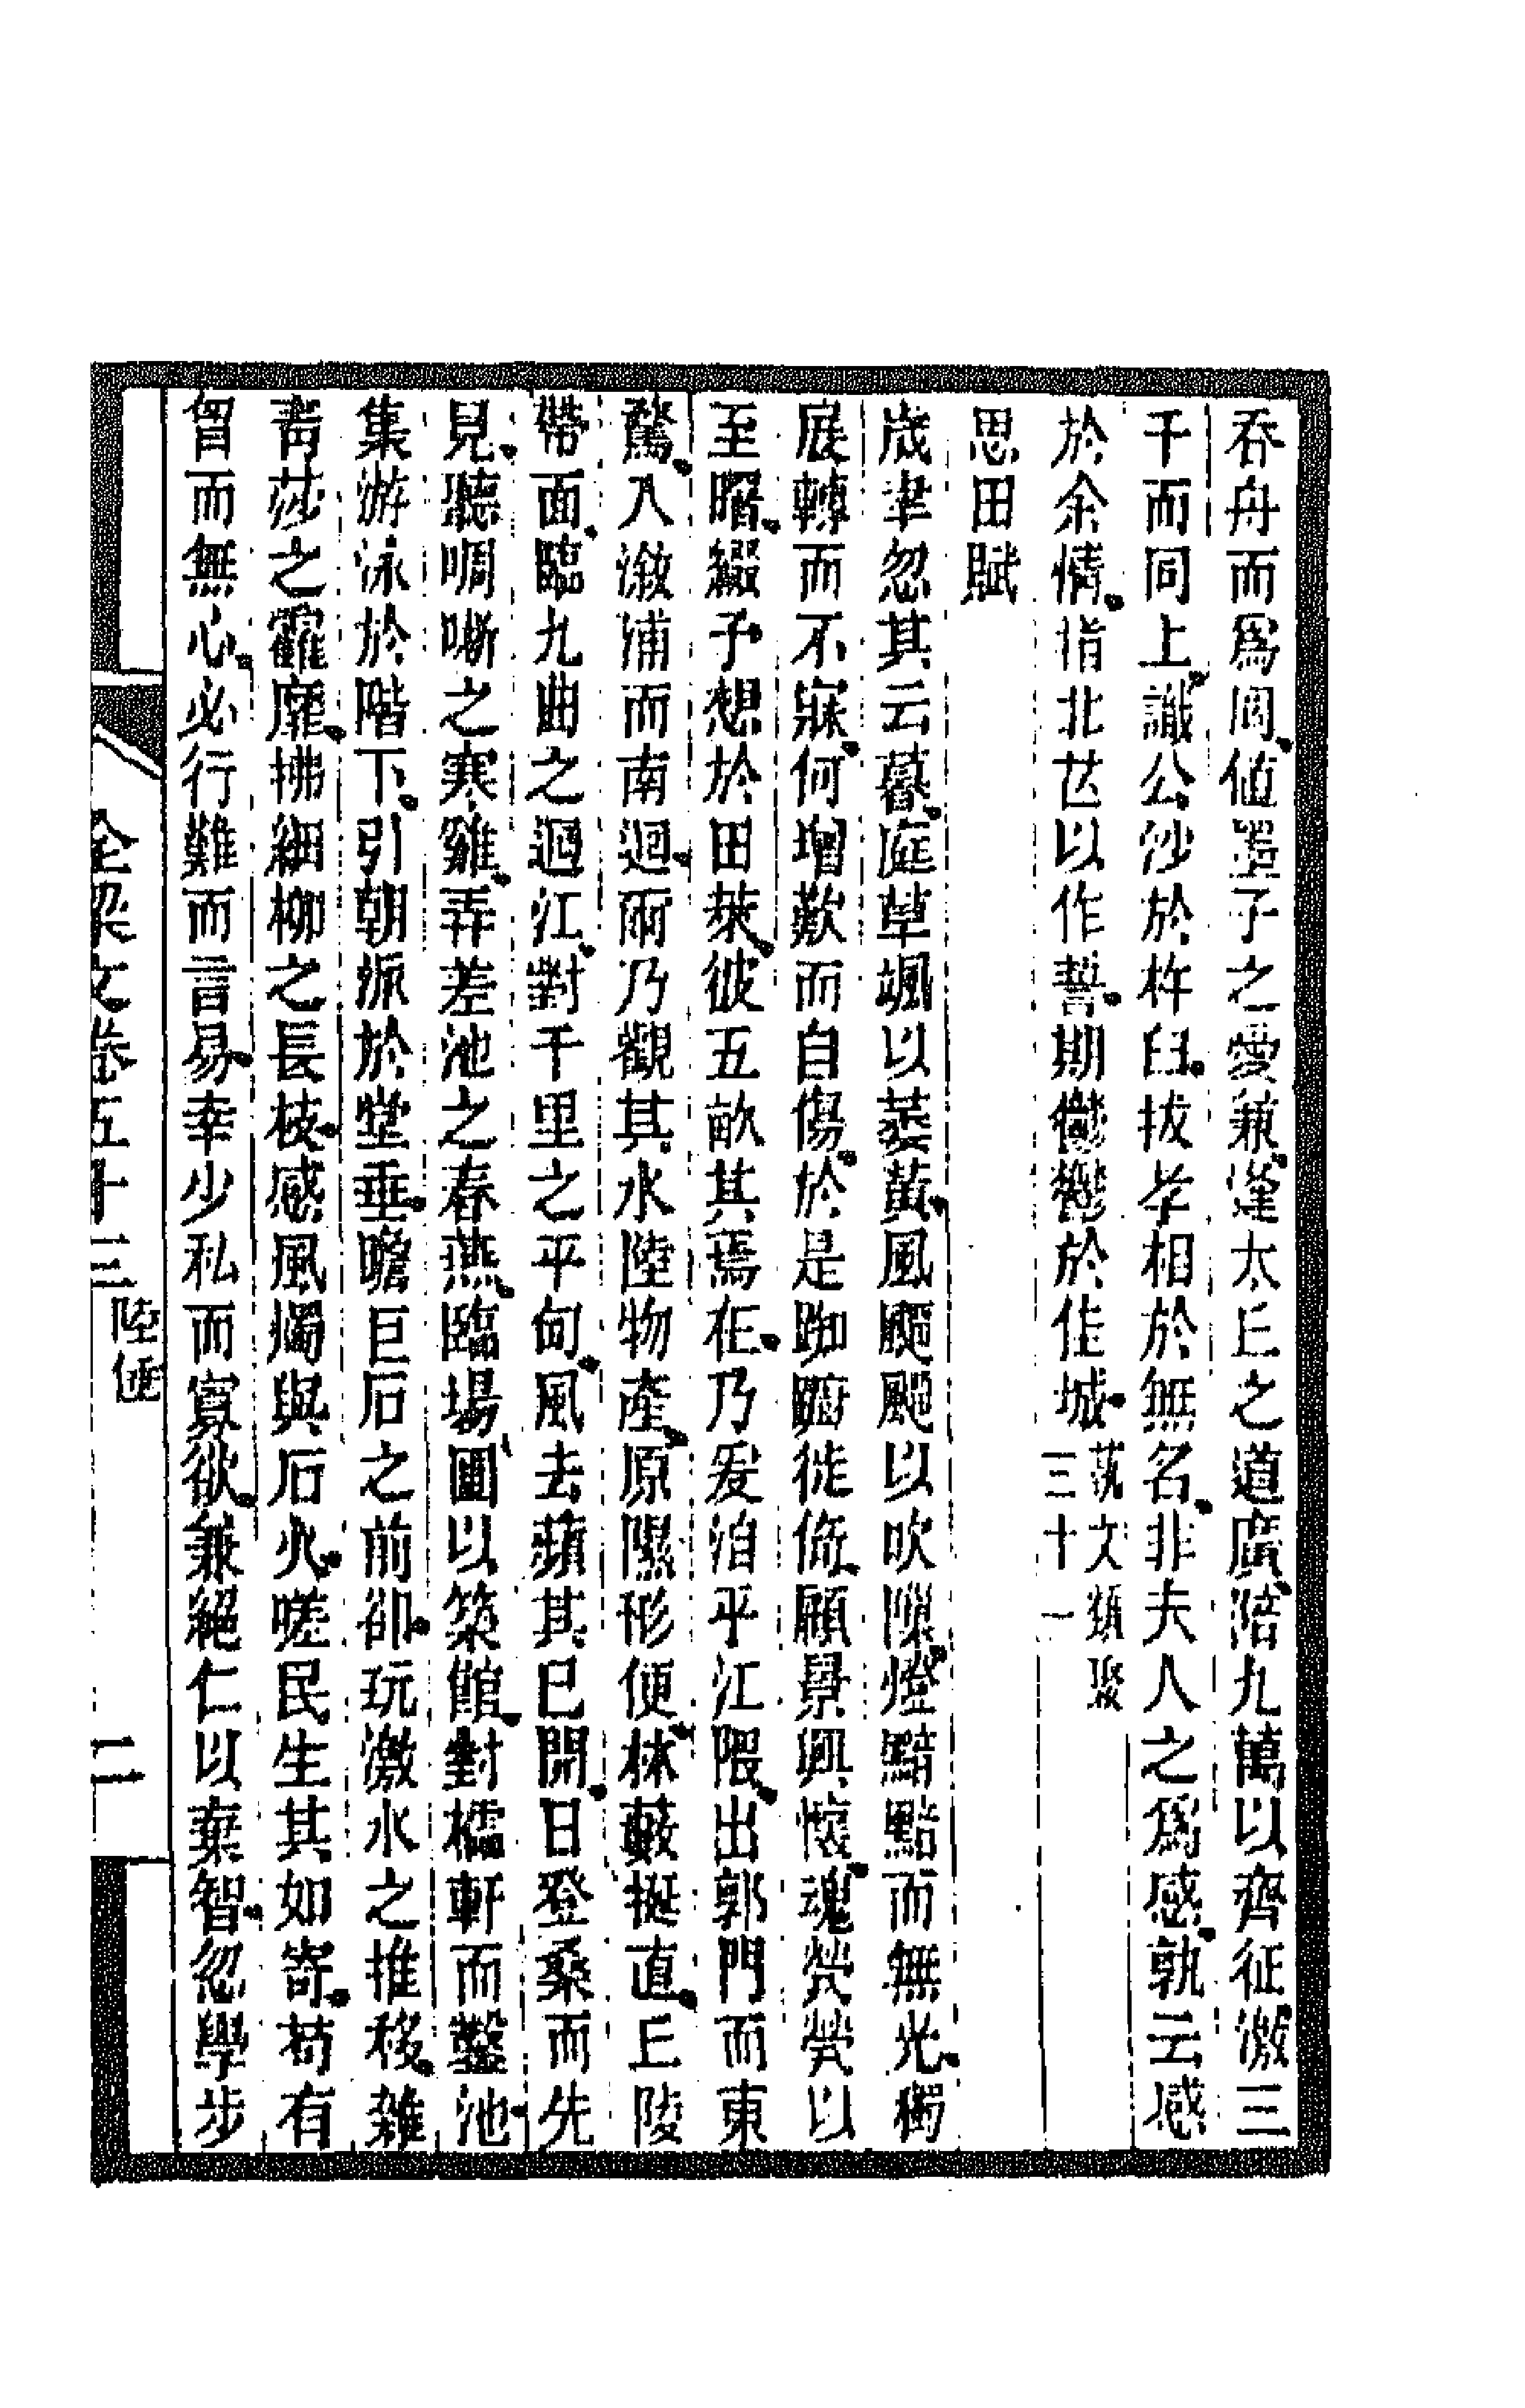 吞舟而爲罔値墨子之愛兼逢太丘之道廣陪九萬以齊征激三
千而同上譏公沙於杵臼拔孝相於無名非夫人之爲感孰云感
於余情指北芒以作誓期鬱鬱於佳城藝文類聚三十一
思田賦
歲聿忽其云暮庭草颯以萎黃風飀颲以吹隙燈黯黮而無光獨
展轉而不寐何增歎而自傷於是踟躕徙倚顧景興懷魂煢煢以
至曙綴予想於田萊彼五畝其焉在乃爰洎乎江隈出郭門而東
騖入漵浦而南迴爾乃觀其水陸物產原隰形便林藪挺直丘陵
帶面臨九曲之迴江對千里之平甸風去蘋其已開日登桑而先
見聽啁哳之寒雞弄差池之春燕臨場圃以築館對櫺軒而鑿池
集游泳於階下引朝派於堂垂瞻巨石之前卻玩激水之推移雜
靑莎之靃靡拂細柳之長枝感風燭與石火嗟民生其如寄苟有
胷而無心必行難而言易幸少私而寡欲兼絕仁以棄智忽學步
全梁文卷五十三 陸倕 二